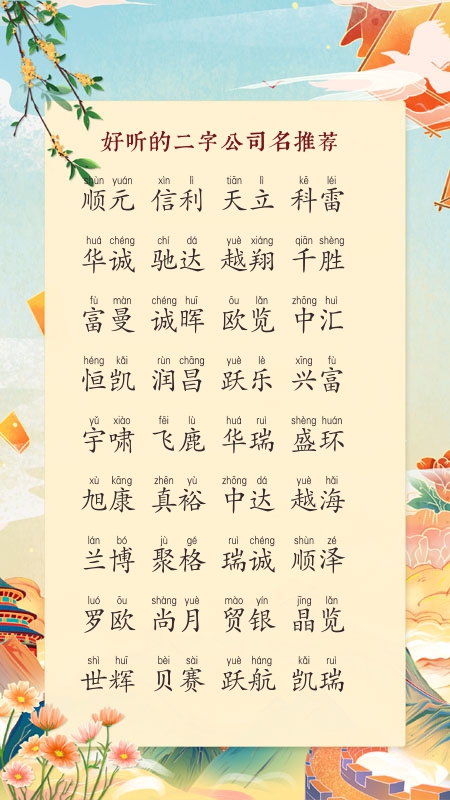 好听的二字公司名推荐
shùn yuán xìn lì tiān lì kē léi
顺元 信利 天立 科雷
huá chéng chí dá yuè xiáng qiān shèng
华诚 驰达 越翔 千胜
fù màn chéng huī ōu lǎn zhōng huì
富曼 诚晖 欧览 中汇
héng kǎi rùn chāng yuè lè xīng fù
恒凯 润昌 跃乐 兴富
yǔ xiào fēi lù huá ruì shèng huán
宇啸 飞鹿 华瑞 盛环
xù kāng zhēn yù zhōng dá yuè hǎi
旭康 真裕 中达 越海
lán bó jù gé ruì chéng shùn zé
兰博 聚格 瑞诚 顺泽
luó ōu shàng yuè mào yín jīng lǎn
罗欧 尚月 贸银 晶览
shì huī bèi sài yuè háng kǎi ruì
世辉 贝赛 跃航 凯瑞